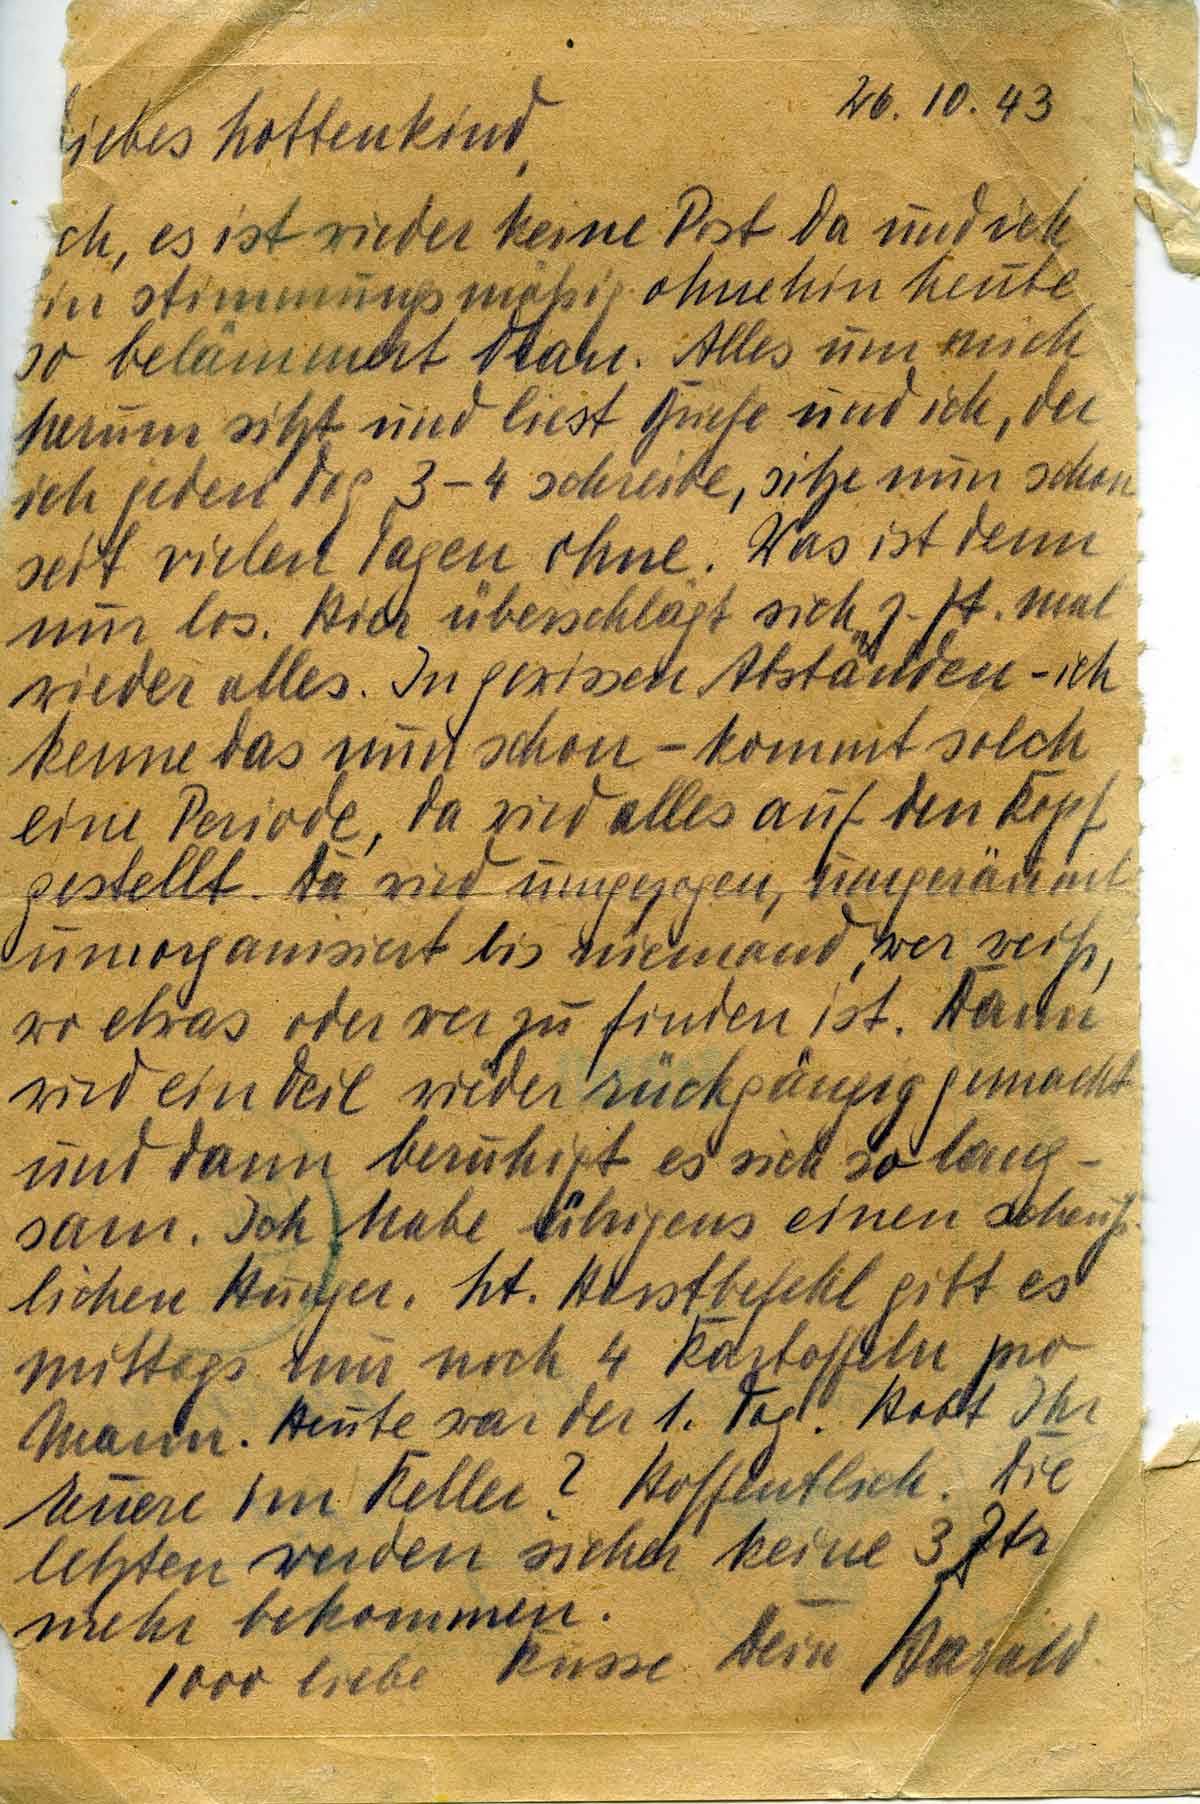 26.10.43
iebes Lottenkind,
ch, es ist wieder keine Post da und ich
in stimmungsmäßig ohnehin heute
so belämmert dran. Alles um mich
herum sitzt und liest Briefe und ich, der
ich jeden Tag 3-4 schreibe, sitze nun schon
seit vielen Tagen ohne. Was ist denn
nur los. Hier überschlägt sich z. Zt. mal
wieder alles. In gewissen Abständen - ich
kenne das nun schon - kommt solch
eine Periode, da wird alles auf den Kopf
gestellt. Da wird umgezogen, umgeräumt
umorganisiert bis niemand, wer weiß,
wo etwas oder wer zu finden ist. Dann
wird ein Teil wieder rückgängig gemacht
und dann beruhigt es sich so lang-
sam. Ich habe übrigens einen scheuß-
lichen Hunger. Lt. Horstbefehl gibt es
mittags nur noch 4 Kartoffeln pro
Mann. Heute war der 1. Tag. Habt Ihr
Eure im Keller? Hoffentlich. Die
letzten werden sicher keine 3 Ztr
mehr bekommen.
1000 liebe Küsse Dein Harald